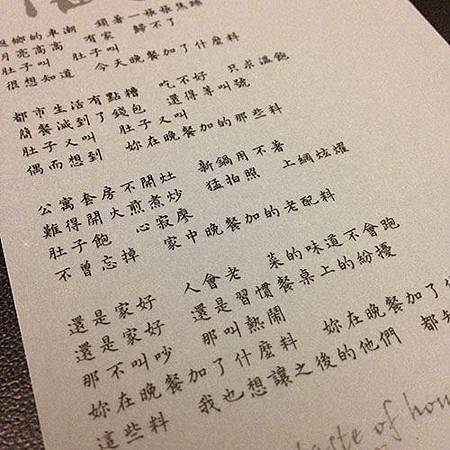 返鄉的車潮 鎖著一張張焦躁
月亮高高 有家 歸不了
肚子叫 肚子叫
很想知道 今天晚餐加了什麼料
都市生活有點糟 吃不好 只求溫飽
簡餐減到了錢包 還得等叫號
肚子又叫 肚子又叫
偶而想到 妳在晚餐加的那些料
公寓套房不開灶 新鍋用不著
難得開火煎煮炒 猛拍照 上網炫耀
肚子飽 心寂寥
不曾忘掉 家中晚餐加的老配料
還是家好 人會老 菜的味道不會跑
還是家好 還是習慣餐桌上的紛擾
那不叫吵 那叫熱鬧
妳在晚餐加了什麼料 妳在晚餐加了什
這些料 我也想讓之後的他們 都
taste of hom